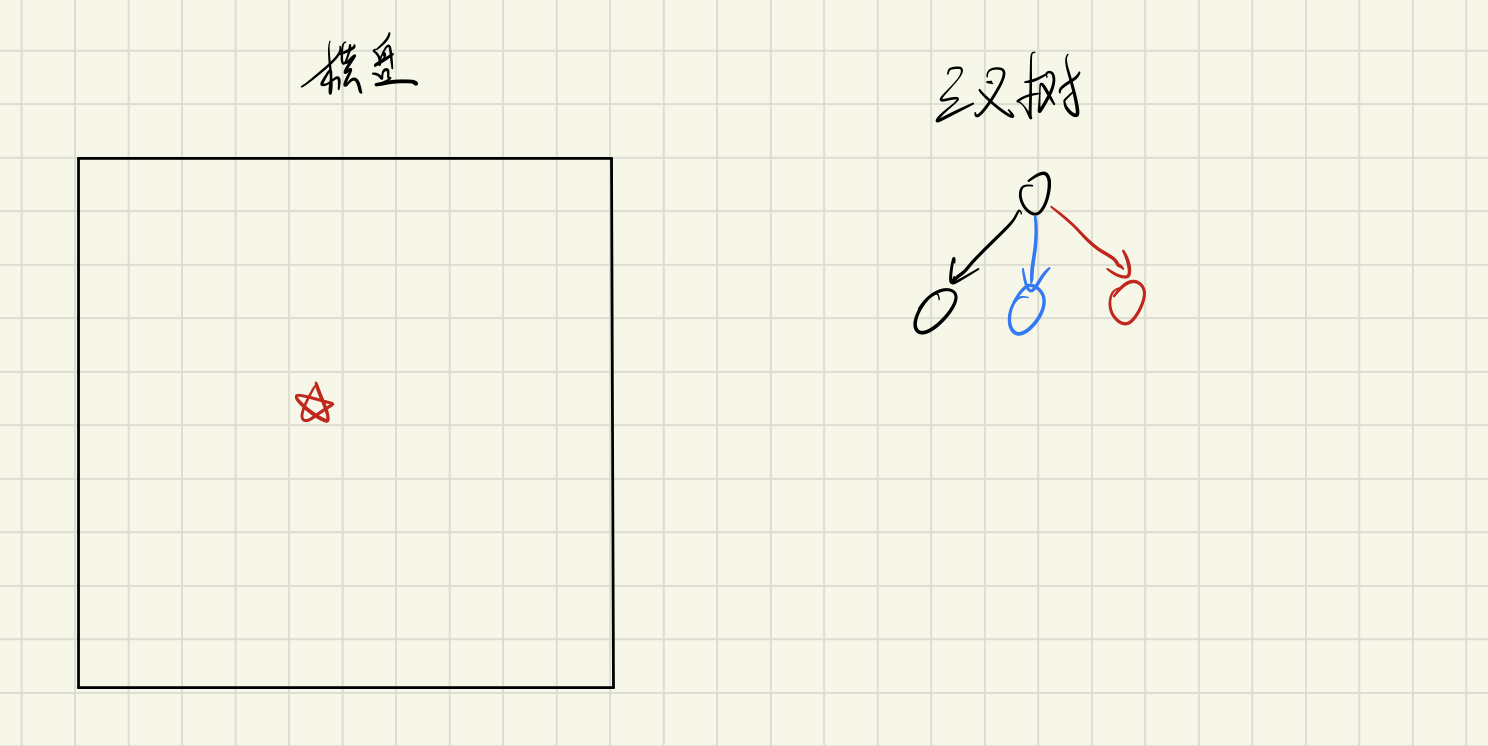 棋盘
三叉树